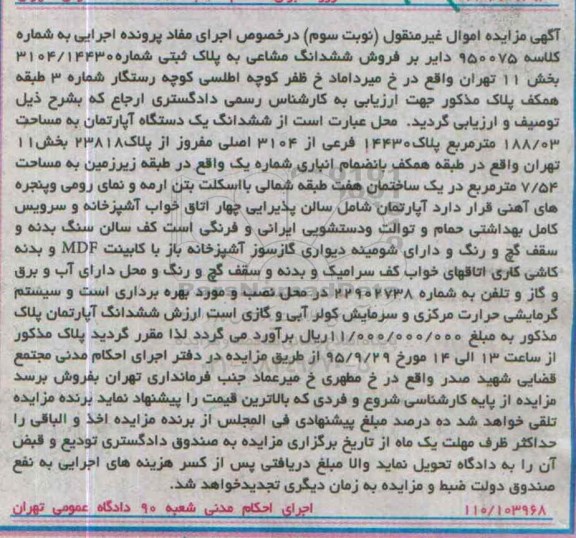 آگهی مزایده اموال غیرمنقول (نوبت سوم) درخصوص اجرای مفاد پرونده اجرایی به شماره
کلاسه ۹۵۰۰۷۵ دایر بر فروش ششدانگ مشاعی به پلاک ثبتی شماره۳۱۰۴/۱۴۴۳۰
بخش ۱۱ تهران واقع در خ میرداماد خ ظفر کوچه اطلسی کوچه رستگار شماره ۳ طبقه
همکف پلاک مذکور جهت ارزیابی به کارشناس رسمی دادگستری ارجاع که بشرح ذیل
توصیف و ارزیابی گردید. محل عبارت است از ششدانگ یک دستگاه آپارتمان به مساحت
۱۸۸/۰۳ مترمربع پلاک۱۴۴۳۰ فرعی از ۳۱۰۴ اصلی مفروز از پلاک۲۳۸۱۸ بخش۱۱
تهران واقع در طبقه همکف بانضمام انباری شماره یک واقع در طبقه زیرزمین به مساحت
۷/۵۴ مترمربع در یک ساختمان هفت طبقه شمالی بااسکلت بتن ارمه و نمای رومی وپنجره
های آهنی قرار دارد آپارتمان شامل سالن پذیرایی چهار اتاق خواب آشپزخانه و سرویس
کامل بهداشتی حمام و توالت ودستشویی ایرانی و فرنگی است کف سالن سنگ بدنه و
سقف گچ و رنگ و دارای شومینه دیواری گازسوز آشپزخانه باز با کابینت MDF و بدنه
کاشی کاری اتاقهای خواب کف سرامیک و بدنه و سقف گچ و رنگ و محل دارای آب و برق
و گاز و تلفن به شماره ۲۲۹۰۲۷۳۸ در محل نصب و مورد بهره برداری است و سیستم
گرمایشی حرارت مرکزی و سرمایش کولر آبی و گازی است ارزش ششدانگ آپارتمان پلاک
مذکور به مبلغ ۱۱/۰۰۰/۰۰۰/۰۰۰ریال برآورد می گردد لذا مقرر گردید پلاک مذکور
از ساعت ۱۳ الی ۱۴ مورخ ۹۵/۹/۲۹ از طریق مزایده در دفتر اجرای احکام مدنی مجتمع
قضایی شهید صدر واقع در خ مطهری خ میرعماد جنب فرمانداری تهران بفروش برسد
مزایده از پایه کارشناسی شروع و فردی که بالاترین قیمت را پیشنهاد نماید برنده مزایده
تلقی خواهد شد ده درصد مبلغ پیشنهادی فی المجلس از برنده مزایده اخذ و الباقی را
حداکثر ظرف مهلت یک ماه از تاریخ برگزاری مزایده به صندوق دادگستری تودیع و قبض
آن را به دادگاه تحویل نماید والا مبلغ دریافتی پس از کسر هزینه های اجرایی به نفع
صندوق دولت ضبط و مزایده به زمان دیگری تجدیدخواهد شد.
۱۱۰/۱۰۳۹۶۸ اجرای احکام مدنی شعبه ۹۰ دادگاه عمومی تهران